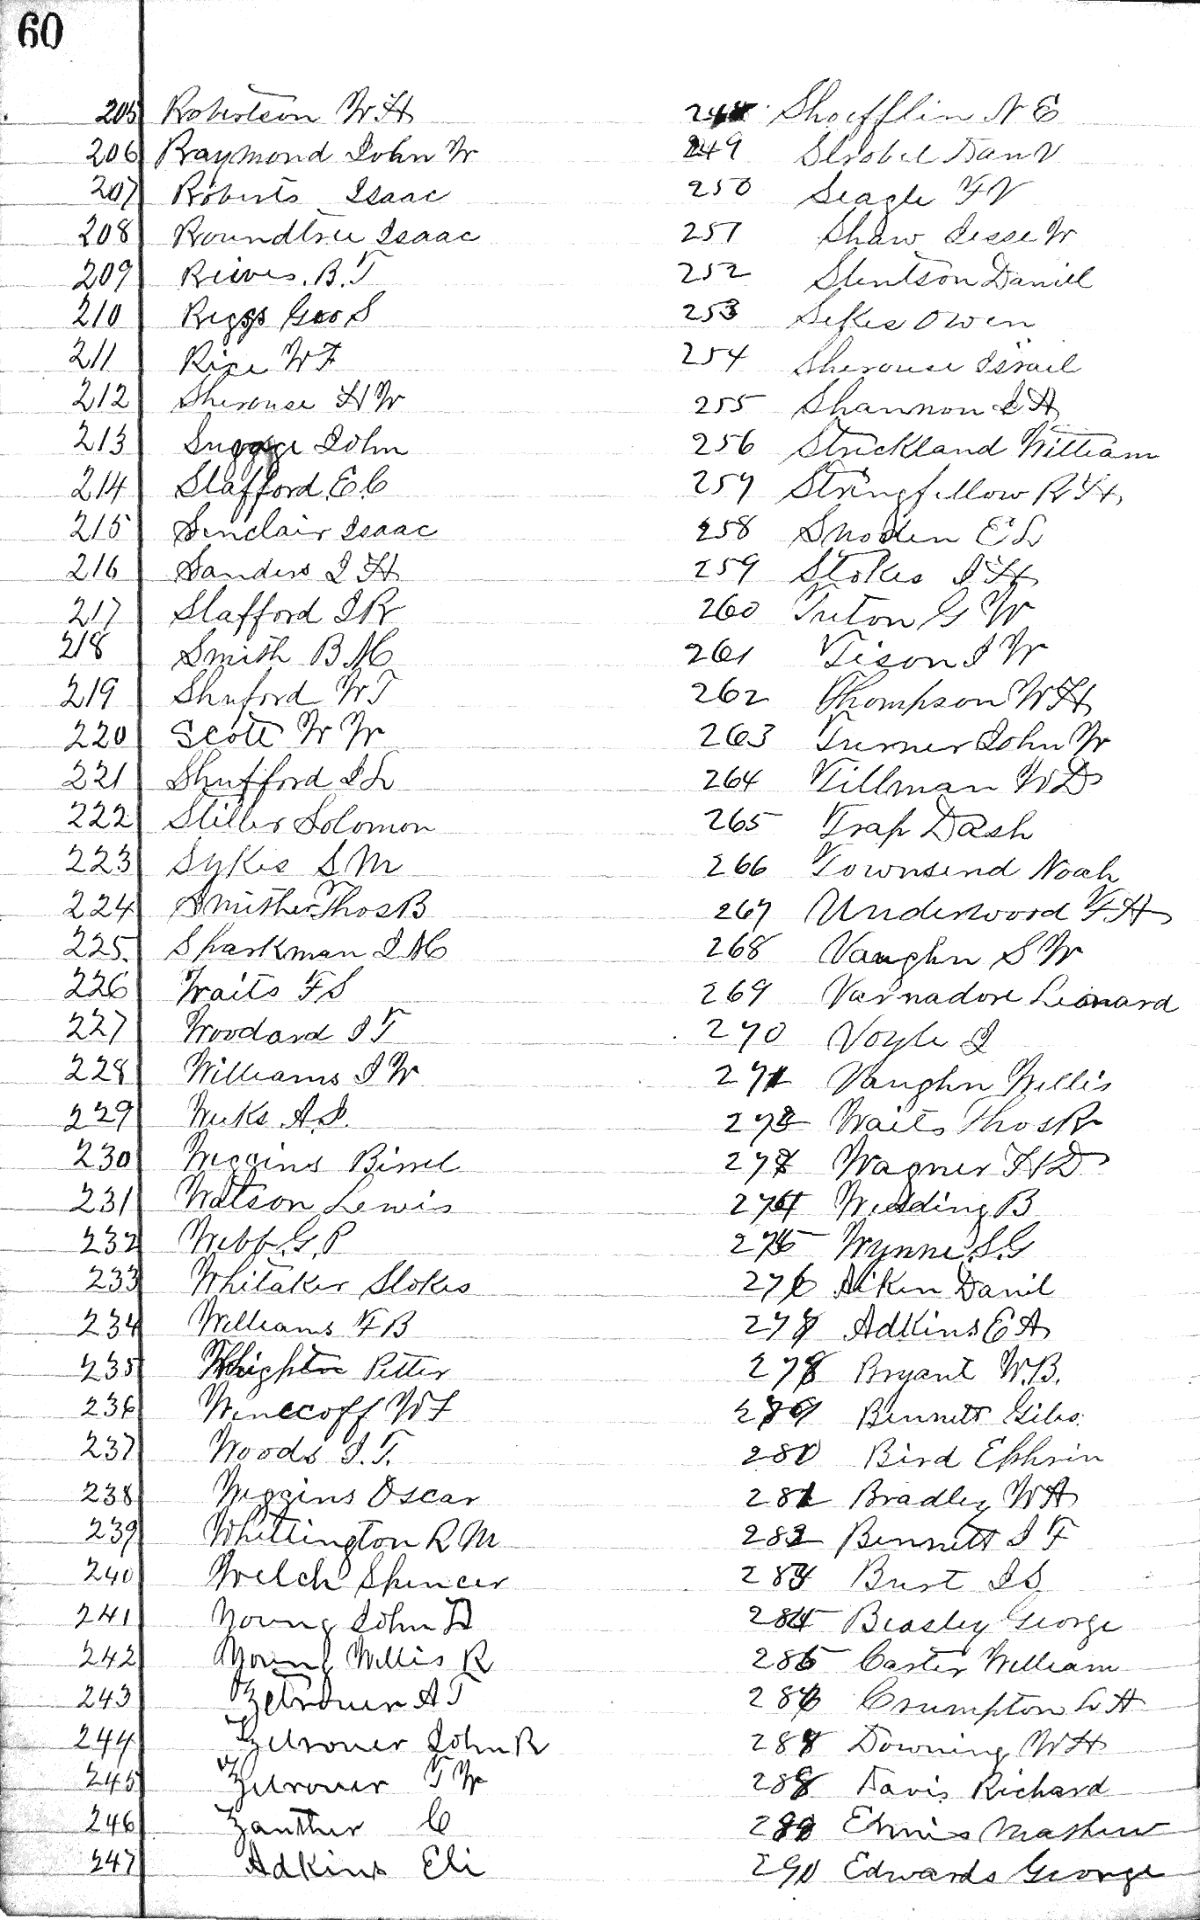 60
205 Robertson W H
206 Raymond John W
207 Roberts Isaac
208 Roundtree Isaac
209 Reives. B. T
210 Riggs Geo S
211 Rice W F
212 Sherouse H W
213 Suggs John
214 Stafford E C
215 Sinclair Isaac
216 Sanders J H
217 Stafford J R
218 Smith B M
219 Shuford W T
220 Scott W W
221 Shufford J L
222 Stiller Solomon
223 Sykes S M
224 Smither Thos B
225. Sparkman J M
226 Waits F S
227 Woodard J T
228 Williams J W
229 Weeks A. J.
230 Wiggins Birrel
231 Watson Lewis
232 Webb. G. P
233 Whitaker Stokes
234 Williams F B
235 Petter
236 Winecoff W F
237 Woods J. T.
238 Wiggins Oscar
239 Whittington R M
240 Welch Spencer
241 Young John D
242 Young Willis R
243 Zetrouer A T
244 Zetrouer John R
245 Zetrouer T W
246 Zanther C
247 Adkins Eli
248 Shoefflin N E
249 Strobel Dan V
250 Seagle F V
251 Shaw Jesse W
252 Stentson Daniel
253 Sekes Owen
254 Sherouse Israil
255 Shannon J H
256 Strickland William
257 Stringfellow R H
258 Snoden E L
259 Stokes J H
260 Tuton G W
261 Tison J W
262 Thompson W H
263 Turner John W
264 Tillman W D
265 Trap Dash
266 Townsend Noah
267 Underwood F H
268 Vaughn S W
269 Varnadore Leonard
270 Voyle J
271 Vaughn Willis
272 Waits Thos R
273 Wagner H D
274 Wedding B
275 Wynne. S. G
276 Aiken Danil
277 Adkins E A
278 Bryant W. B.
279 Bennett Giles
280 Bird Ephrin
281 Bradley W A
282 Bennett J F
283 Burt J S
284 Beasley George
285 Carter William
286 Crumpton L H
287 Downing W H
288 Davis Richard
289 Mathew
290 Edwards George